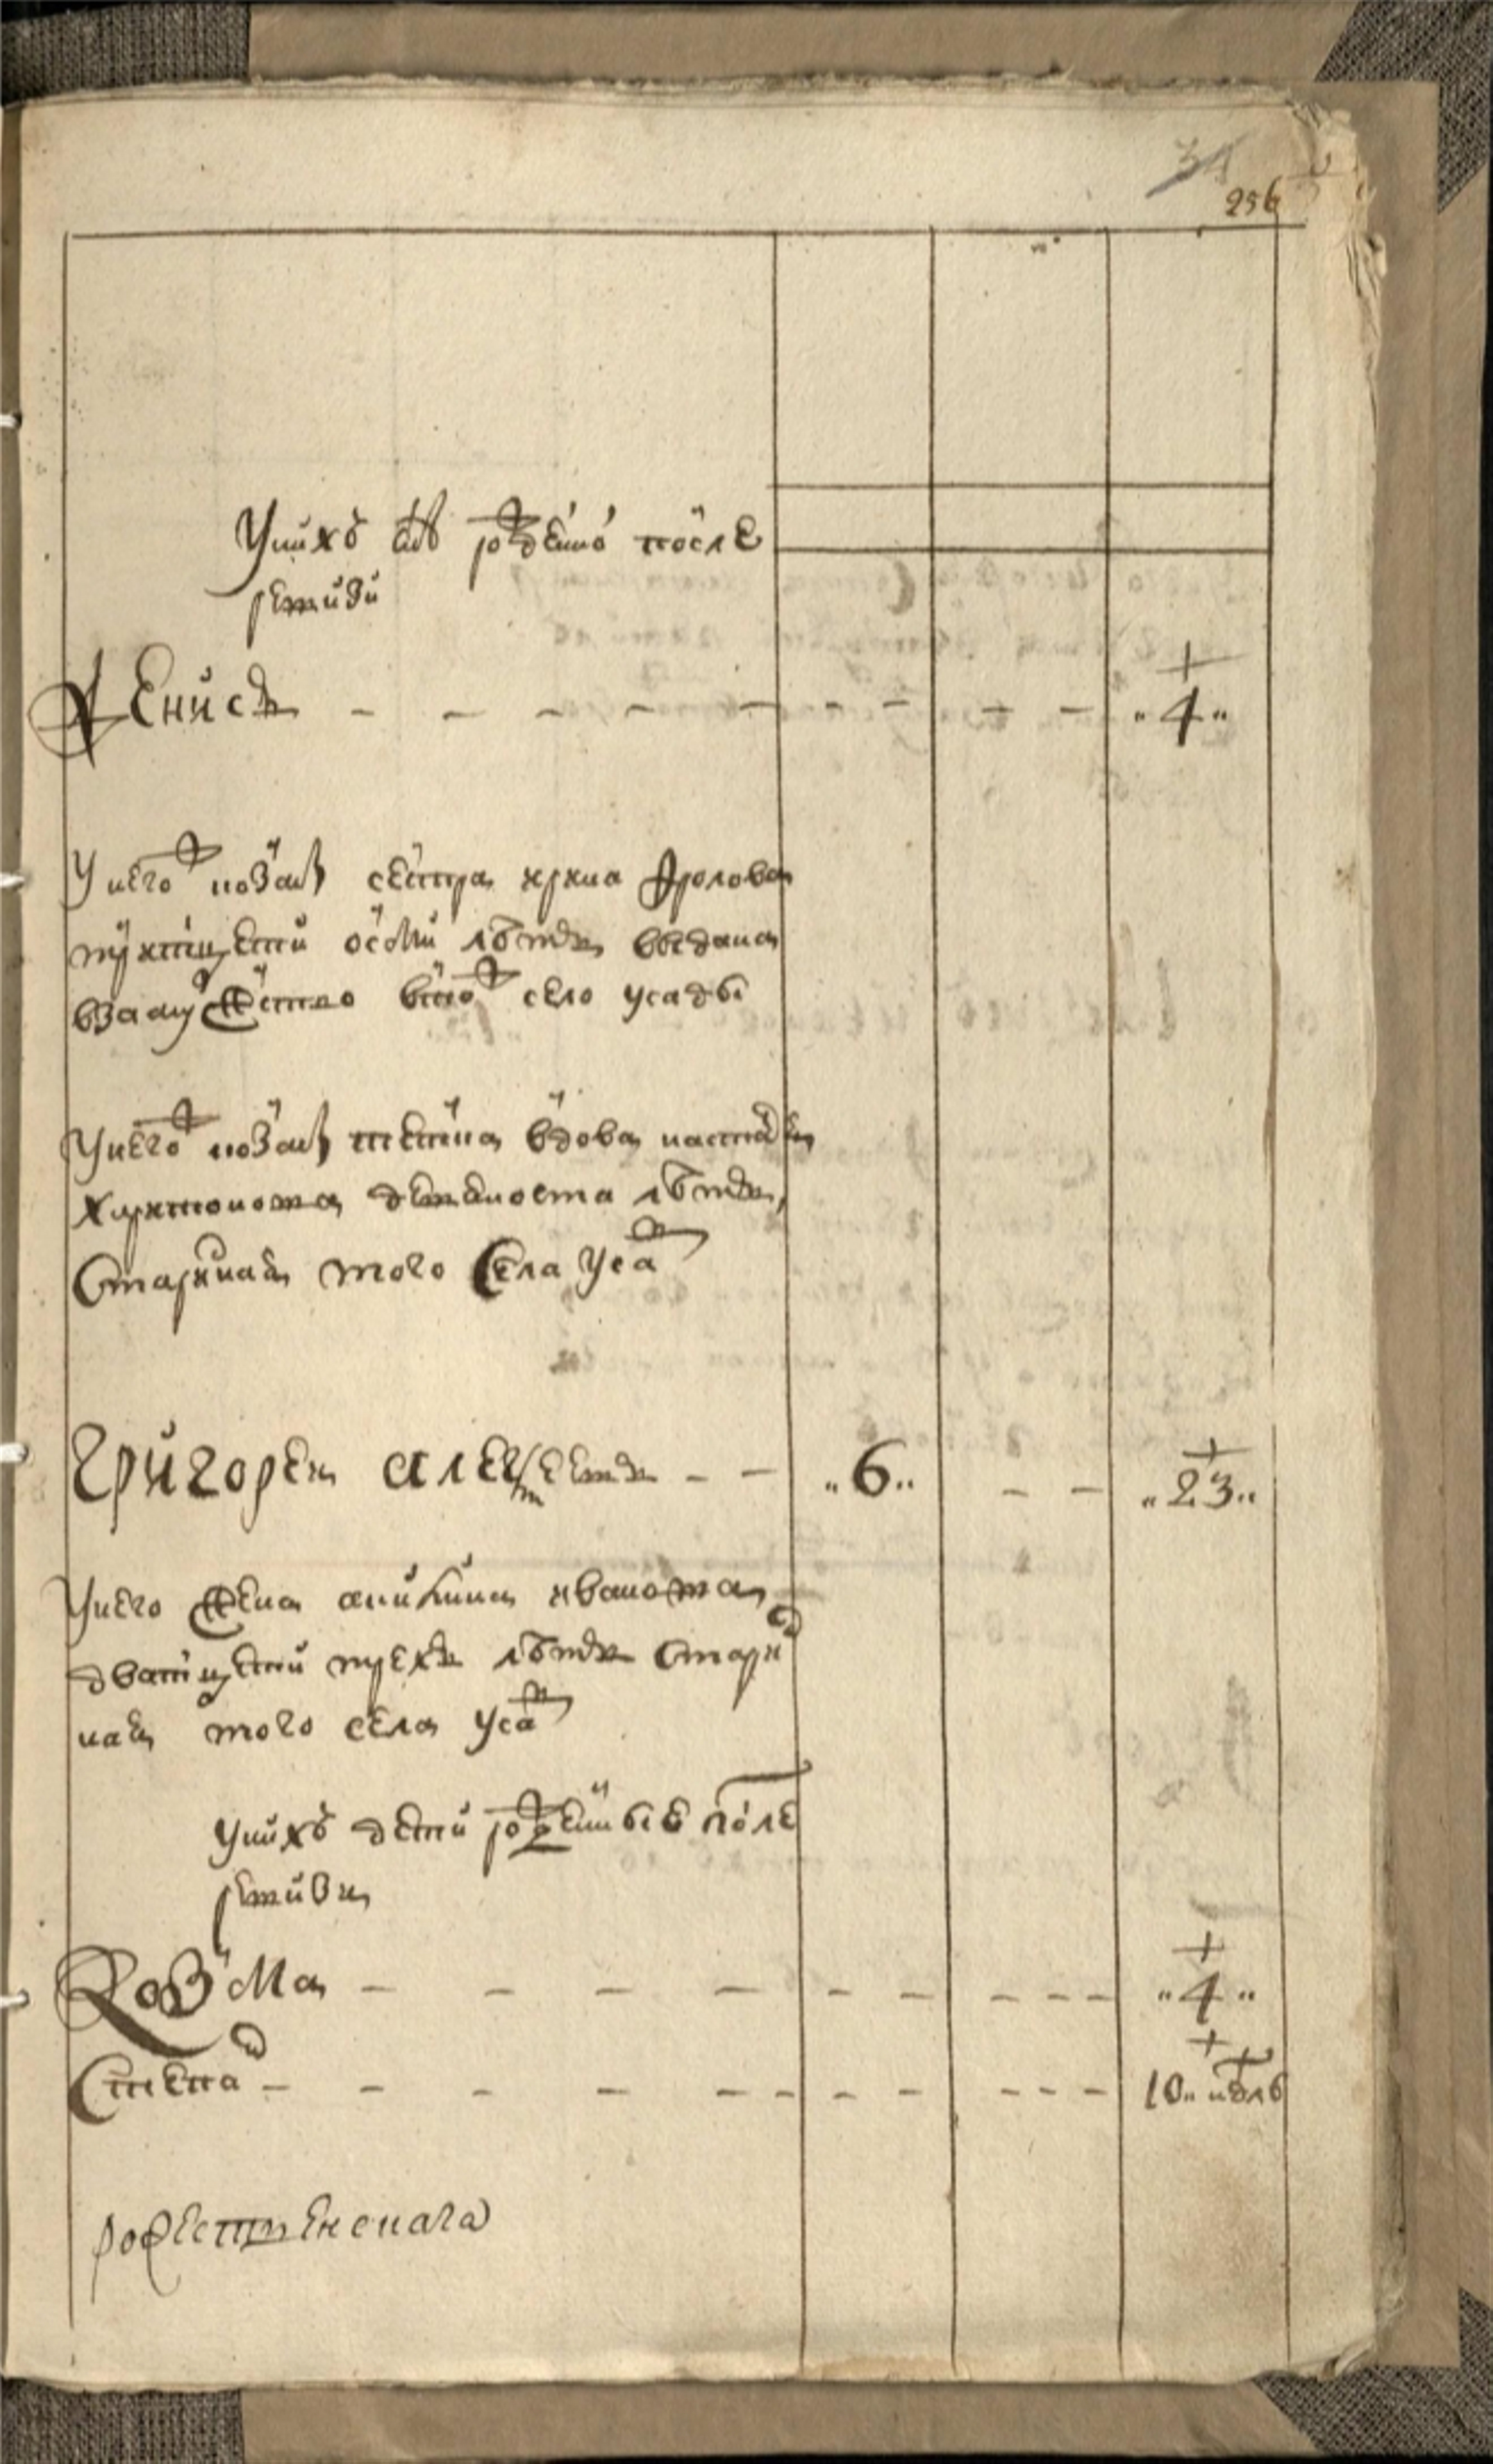 34
256
У нихъ снъ рожденой после
ревизи
Денисъ - - - - - - - - - "4"
У него ж назват сестра ирина фролова
тритцети осми летъ выдана
взамужество в то ж село усады
У него ж назват тетка вдова настася
харитонова девяноста летъ
старинная того села Усад
Григорей алексеевъ - - "6" - - "23"
У него жена аникина иванова
дватцети трехъ летъ старин
ная того села Усад
У нихъ дети рожденные после
ревизии
Козма - - - - - - - - - "4"
Степан - - - - - - - - - 10 недель
рожественскага